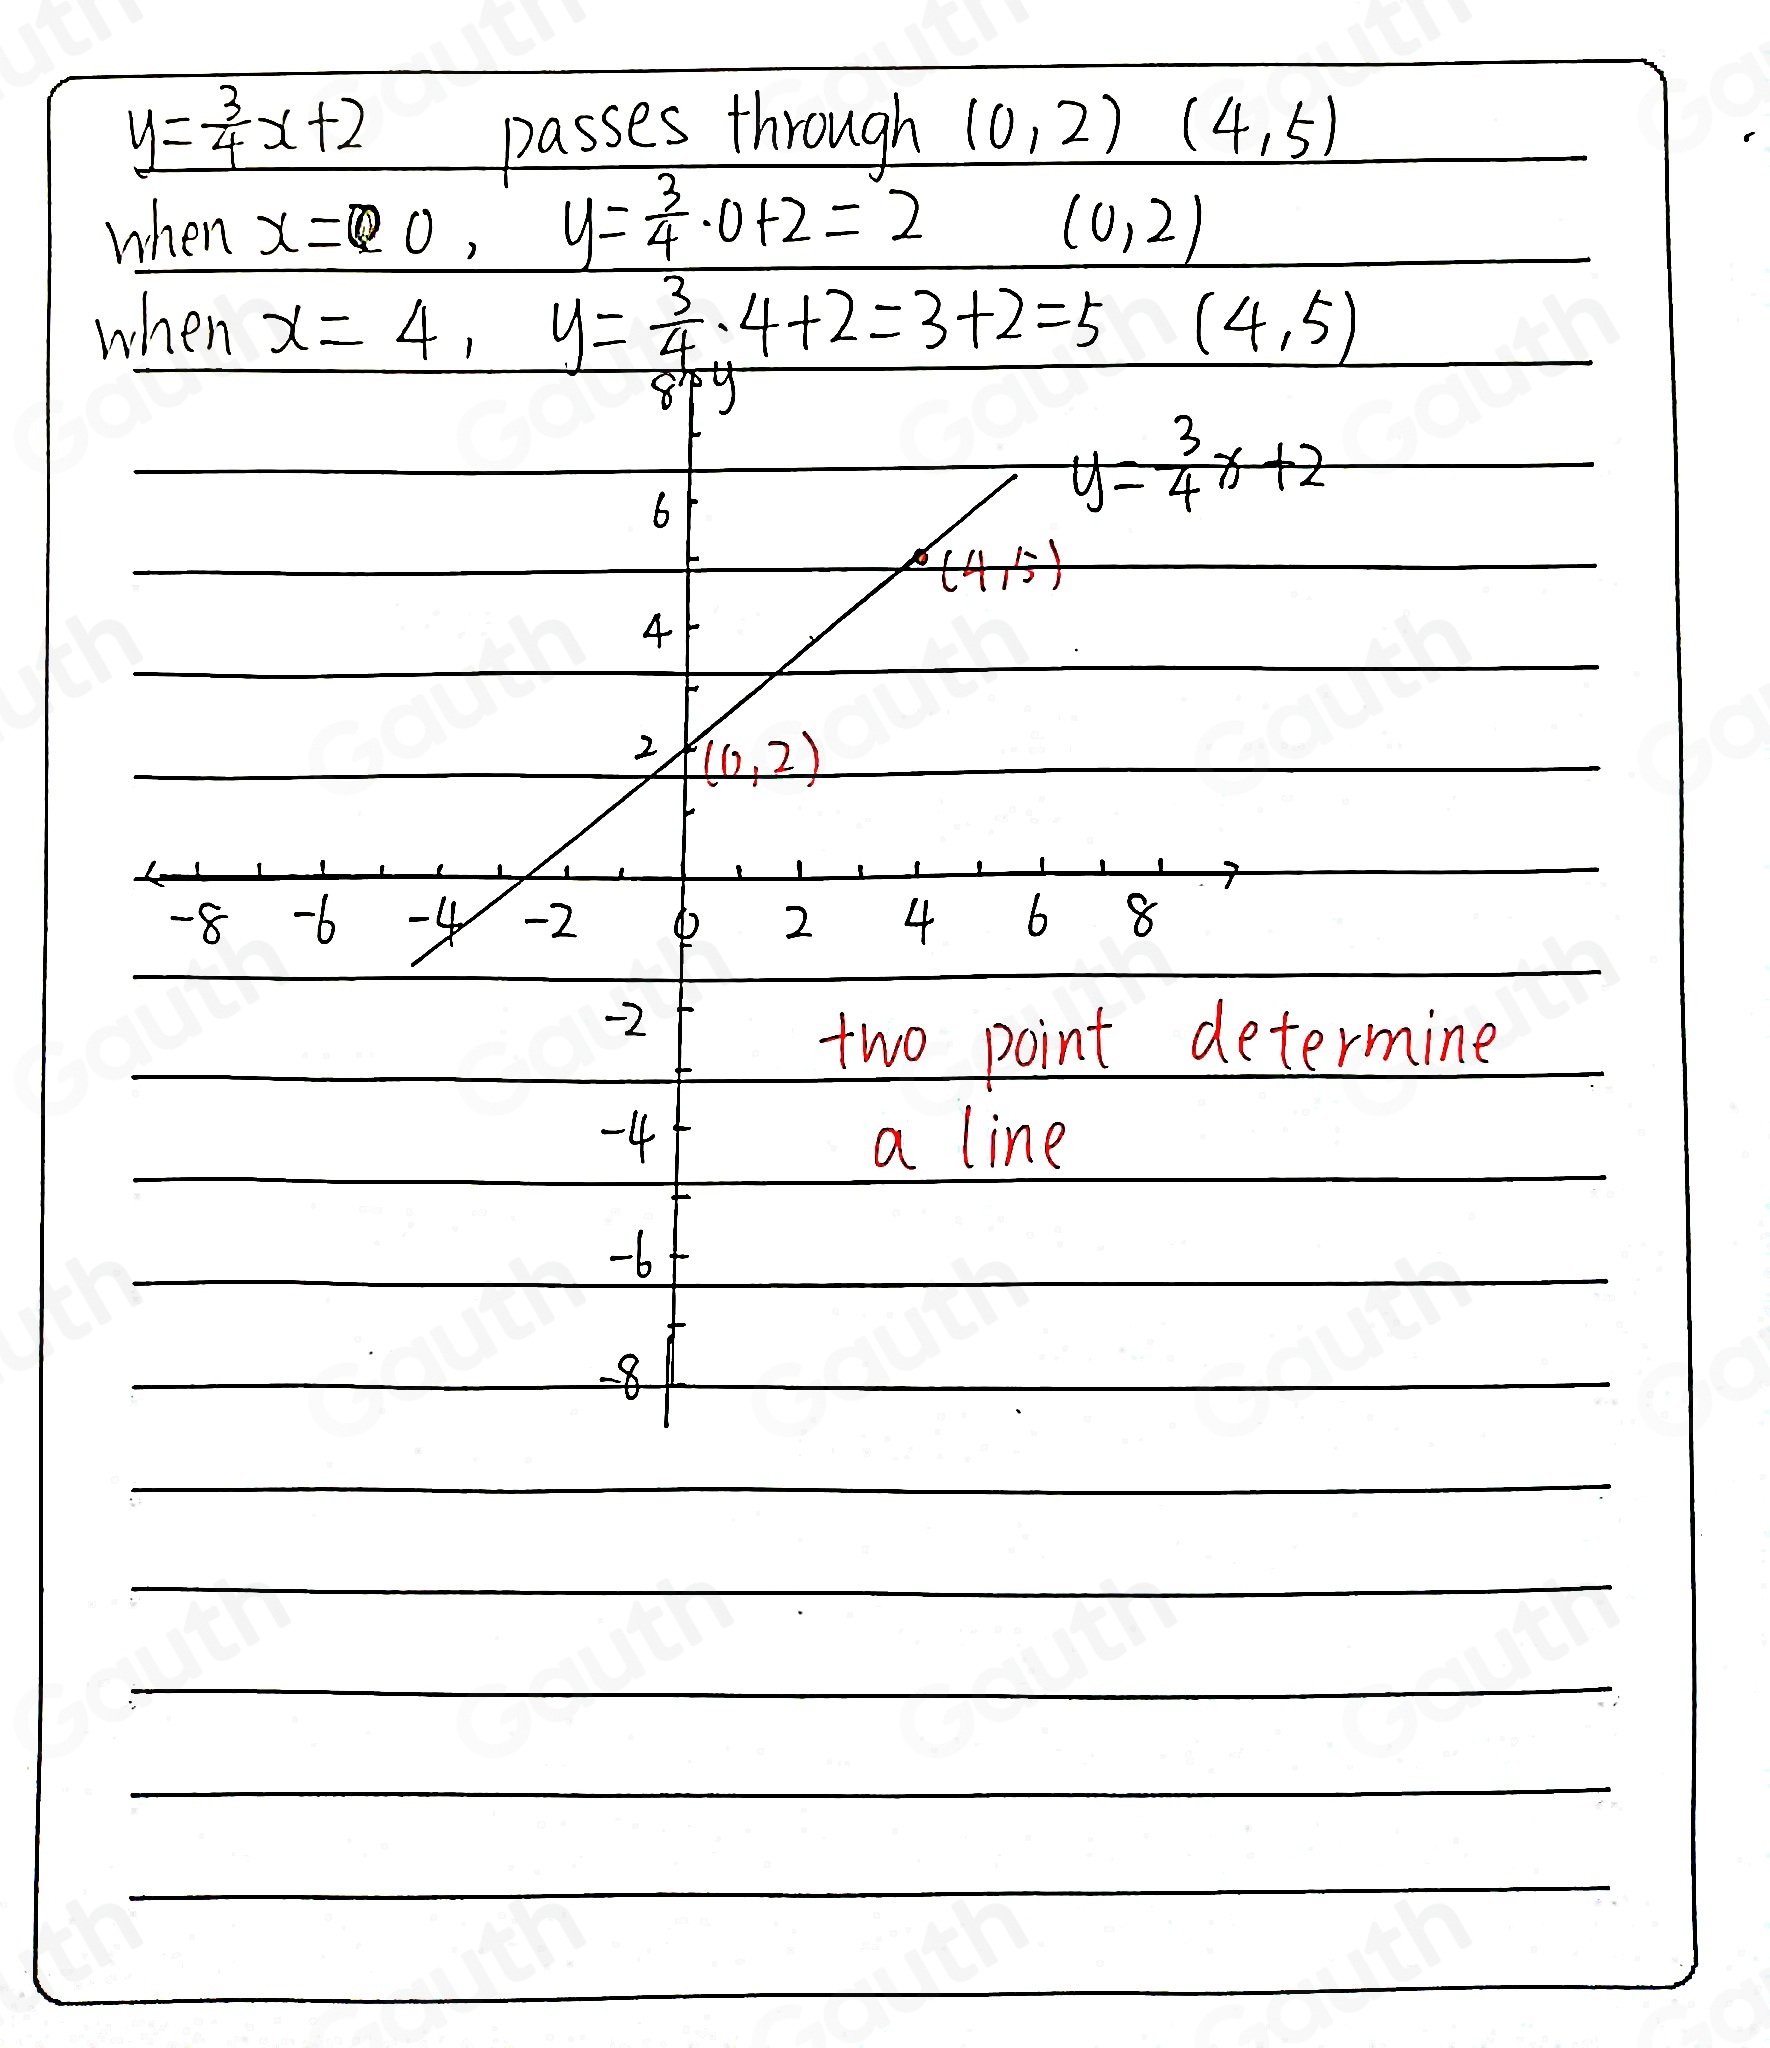 y=3/4x+2 passes through (0,2) (4,5)
when x= 0, y=3/4·0+2=2 (0,2)
when x=4, y=3/4·4+2=3+2=5 (4,5)
8 y
y=3/4x+2
6
(4,5)
4
2 (0,2)
-8 -6 -4 -2 0 2 4 6 8
-2 two point determine
-4 a line
-6
-8
Gauth